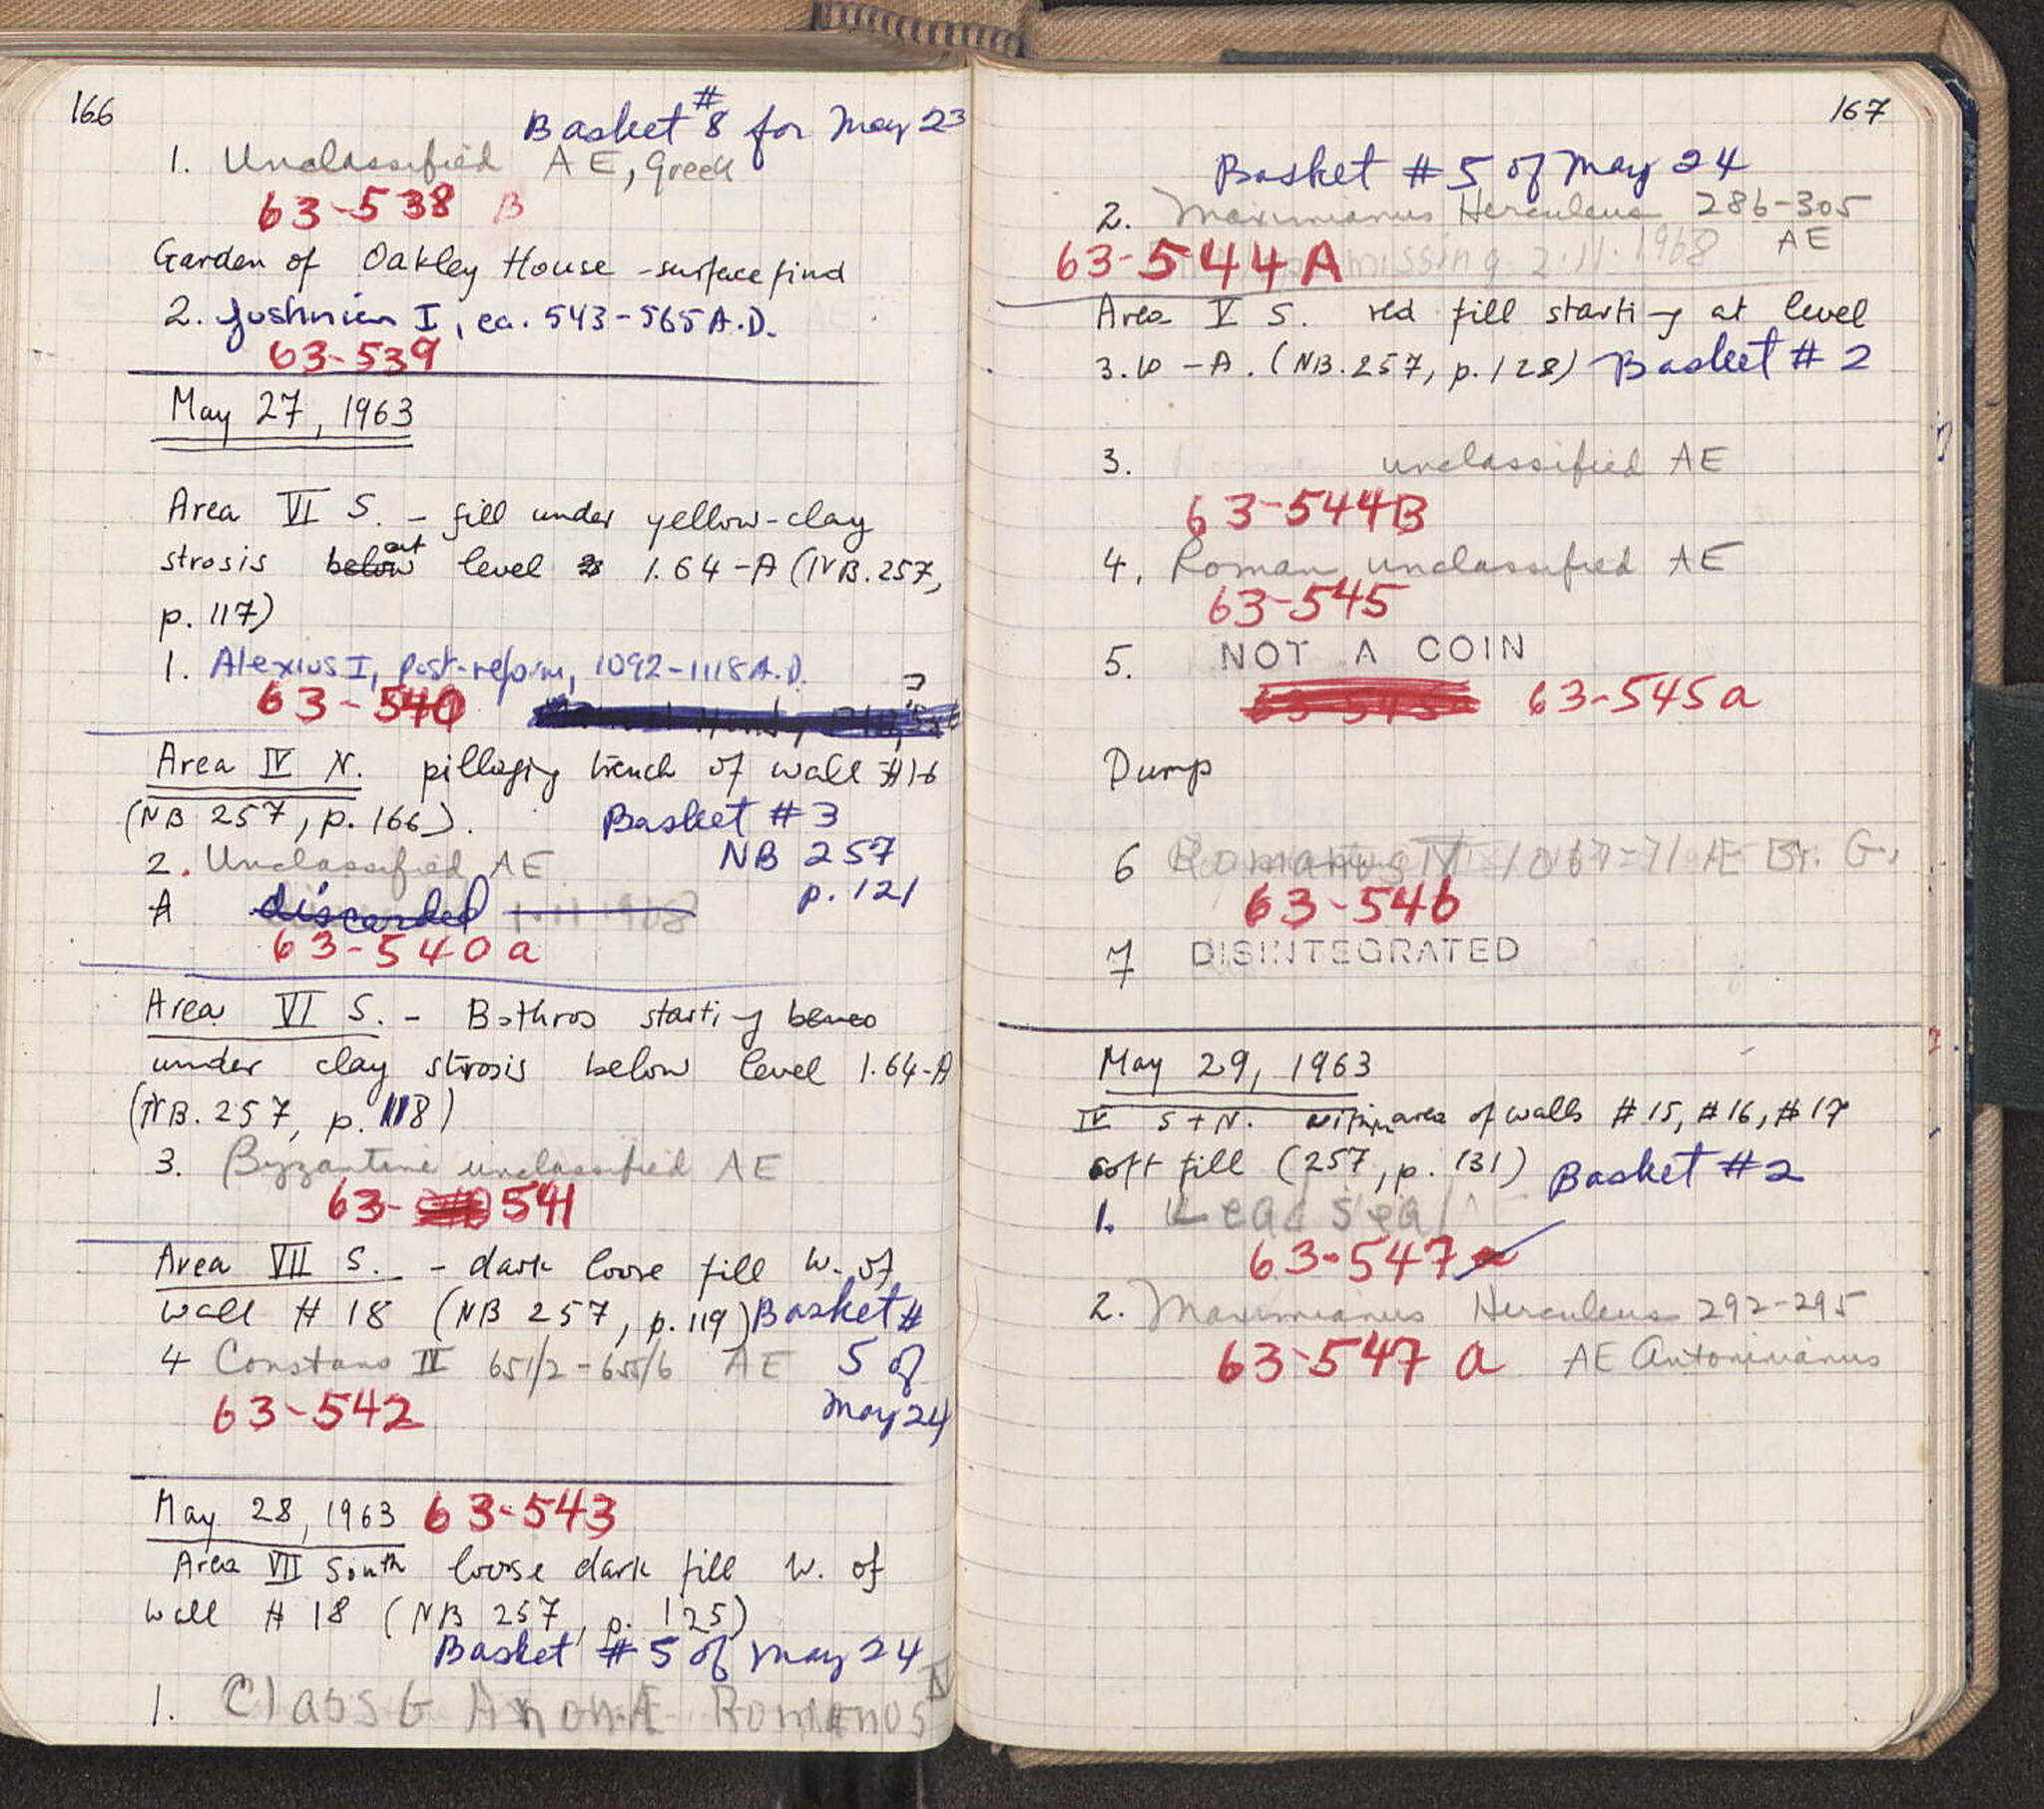 166
Basket # 8 for May 23
1. Unclassified AE, Greek
63-538 B
Garden of Oakley House - surface find
2. Justinian I, ca. 543-565 A.D.
63-539
May 27, 1963
Area VI S. - fill under yellow-clay
strosis below at level 1.64-A (NB. 257,
p. 117)
1. Alexius I, post-reform, 1092-1118 A.D.
63-540
Area IV N. pillaging trench of wall #16
(NB 257, p. 166).
Basket #3
2. Unclassified AE
NB 257
p. 121
A discarded
63-540a
Area VI S. - Bothros starting
under clay strosis below level 1.64-A
(NB. 257, p. 118)
3. Byzantine unclassified AE
63- 541
Area VII S. - dark loose fill W. of
wall # 18 (NB 257, p. 119) Basket #
5 of
May 24
4 Constans II 651/2-655/6 AE
63-542
May 28, 1963 63-543
Area VII South loose dark fill W. of
wall # 18 (NB 257, p. 125)
Basket #5 of May 24
1. Class G Anon. AE Romanos IV
167
Basket #5 of May 24
2. Maximianus Herculeus 286-305
AE
63-544A missing 2.11.1968
Area V S. red fill starting at level
3.10-A. (NB. 257, p. 128) Basket #2
3. unclassified AE
63-544B
4. Roman unclassified AE
63-545
5. NOT A COIN
63-545a 63-545a
Dump
6 Romanus IV 1067-71 AE Br. G.
63-546
7 DISINTEGRATED
May 29, 1963
IV S+N. within area of walls #15, #16, #17
soft fill (257, p. 131) Basket #2
1. Lead Seal
63-547
2. Maximianus Herculeus 292-295
63-547 a AE Antoninianus